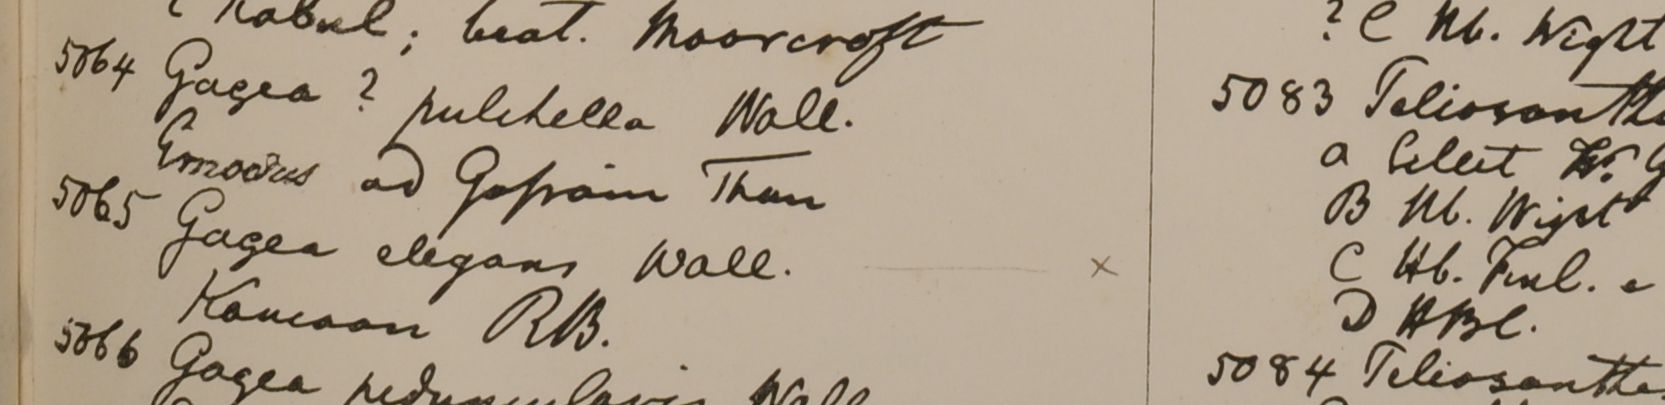 ? Kabul; beat. Moorcroft
5064 Gagea ? pulchella Wall.
Emodus ad Gossain Than
5065 Gagea elegans Wall. x
Kamaon RB.
5066 Gagea peduncularis Wall
? C Hb. Wight
5083 Peliosanthe
a Celeut W. G
B Hb. Wight
C Hb. Finl. e
D HBC.
5084 Peliosanthe